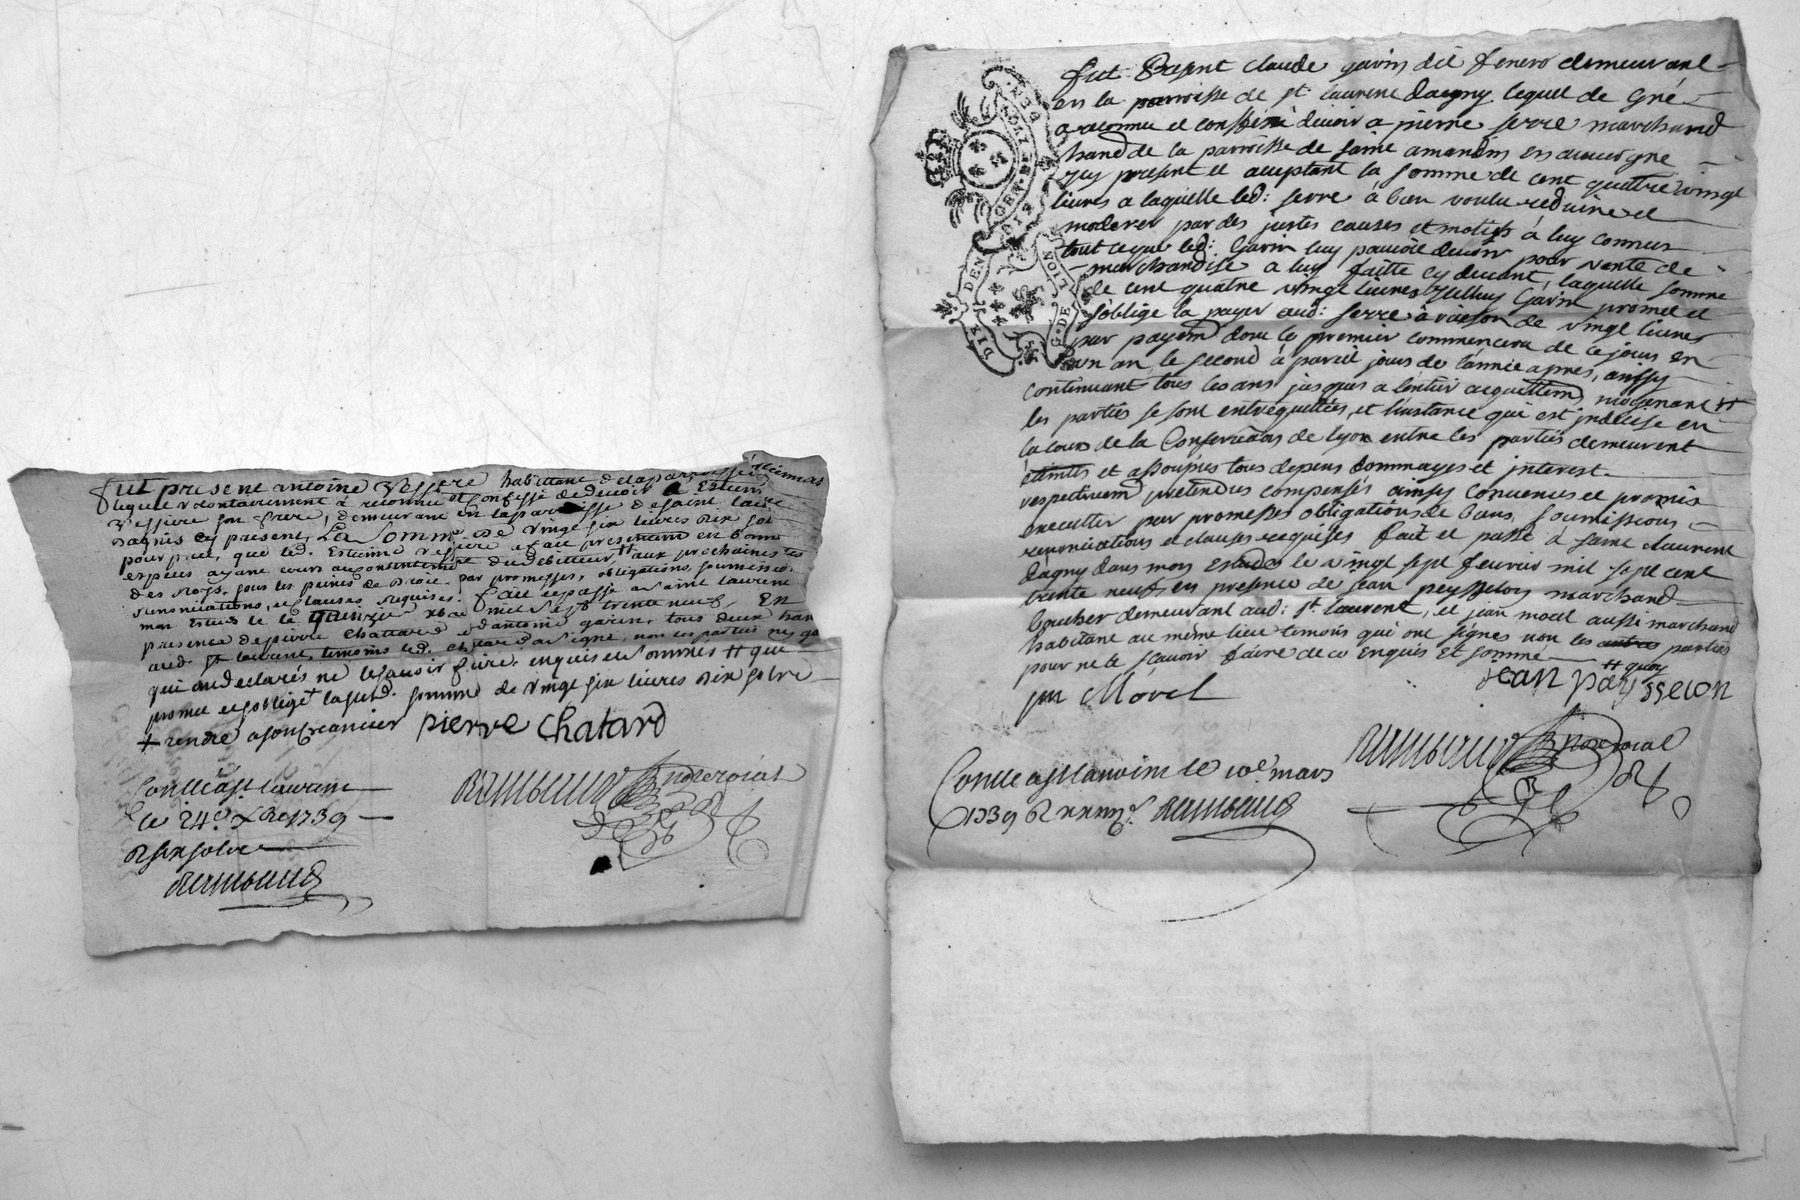 fut present antoine Vessere habittant de la parroisse
lequel volontairement à reconnu et confessé de devoir a Estiene
Vessiere son frere, demeurant en la parroisse de saint laure
Dagnis cy present, La somme de vingt six livres dix sol
pour pret, que led. Estienne Vessiere a fait presentem en bonne
especes ayant cours au contentemt du debitteur ++ aux prochaines fes
des Roys, sous les peines de Droit. par promesses, obligations, soumissio.
renonciations, et clauses requises. fait et passé a saint laurent
mon Estude le le quinzie xbre mil sept trente neuf, En
presence de pierre Chattard et d'antoine garin, tous deux han
aud. st laurent, temoins led. chattard a signé, non les parties ny ga
qui ont declarés ne le sçavoir faire. enquis et sommés ++ que
promet et s'obligé laquel. somme de vingt six livres dix sol
+ rendre a son creancier pierre Chatard
Conllé a st laurent
le 24e xbre 1739
R six sols
Rimbaud
Rimbaud No.re roial
fut Present claude gavin dit fenero demeurant
en la parroisse de st laurent dagny lequel de gré
a reconnu et confessé devoir a pierre serre marchand
hand de la parroisse de saint amandin en auvergne
icy present et aceptant la somme de cent quattre vingt
livres a laquelle led: serre à bien voulu reduire et
moderer par des justes causes et motifs à luy connus
tout ce que led: Gavin luy pouvoit devoir pour vente de
marchandise a luy faitte cy devant, laquelle somme
de cent quatre vingt livres Icelluy Gavin promet et
s'oblige la payer aud: serre à raison de vingt livres
par payemt dont le premier commencera de ce jour en
un an, le second à pareil jour de l'année apres, ainsy
continuant tous les ans jusques a l'entier acquittemt, moyenant ++
les parties se sont entrequittées, et l'instance qui est indecise en
la cour de la Conservation de lyon entre les parties demeurent
éteintes et assoupies tous depens dommages et interest
respectivemt pretendus compensés ainsy convenus et promis
executter par promesses obligations de biens, soumissions
renonciations et clauses requises fait et passé à saint laurent
dagny dans mon estude le vingt sept fevrier mil sept cent
trente neuf, en presence de jean peysselon marchand
boucher demeurant aud: st laurent, et jean morel aussi marchand
habitant au même lieu temoins qui ont signés non les parties
pour ne le sçavoir faire de ce Enquis Et sommé
++ quoy
jean paysselon
jn Morel
Rimbaud No.re roial
Conllé a st laurent le 10e mars
1739 R Rimbaud